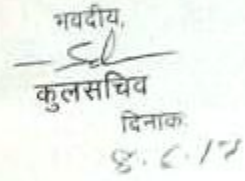 भवदीय,
कुलसचिव
दिनांक:
8.6.17